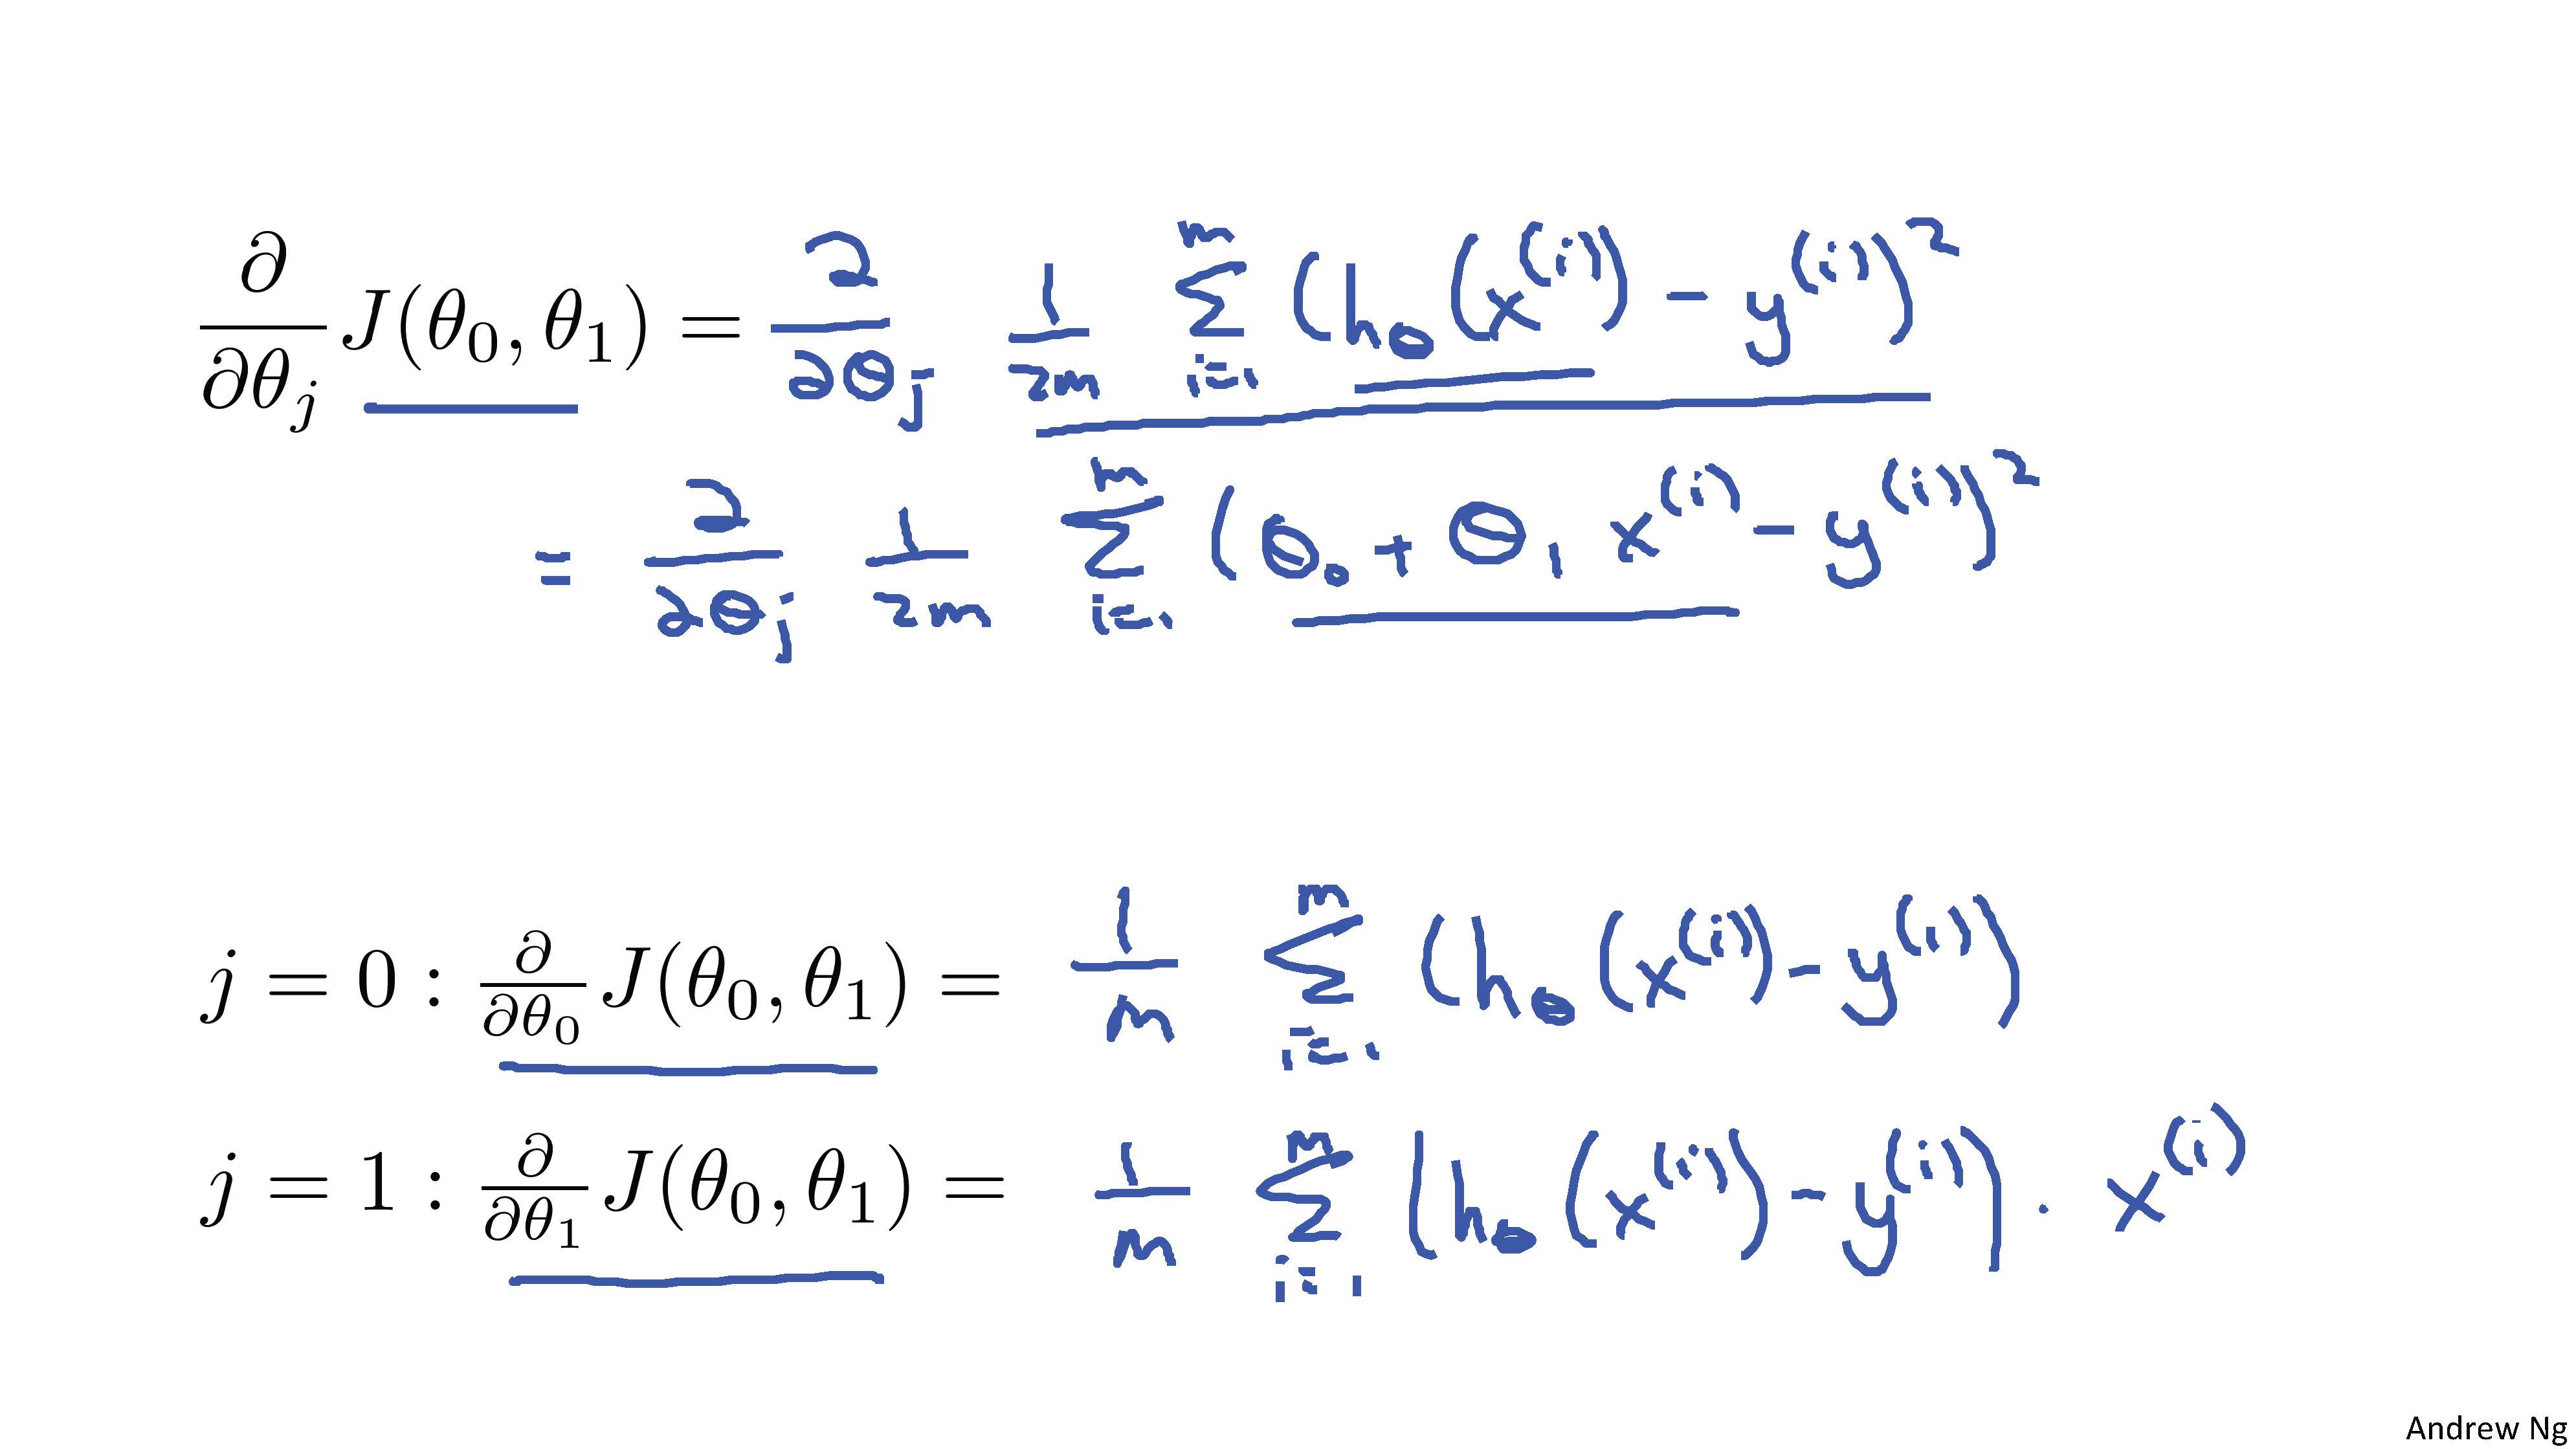 ∂/∂θ_j J(θ₀, θ₁) = ∂/∂θ_j 1/2m Σ_{i=1}^{m} (h_θ(x^(i)) - y^(i))²
= ∂/∂θ_j 1/2m Σ_{i=1}^{m} (θ₀ + θ₁ x^(i) - y^(i))²
j = 0 : ∂/∂θ₀ J(θ₀, θ₁) = 1/m Σ_{i=1}^{m} (h_θ(x^(i)) - y^(i))
j = 1 : ∂/∂θ₁ J(θ₀, θ₁) = 1/m Σ_{i=1}^{m} (h_θ(x^(i)) - y^(i)) · x^(i)
Andrew Ng